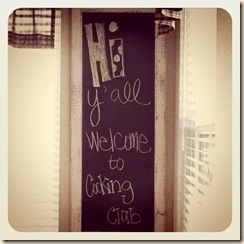 Hi
y'all
Welcome
to
Cooking
Club